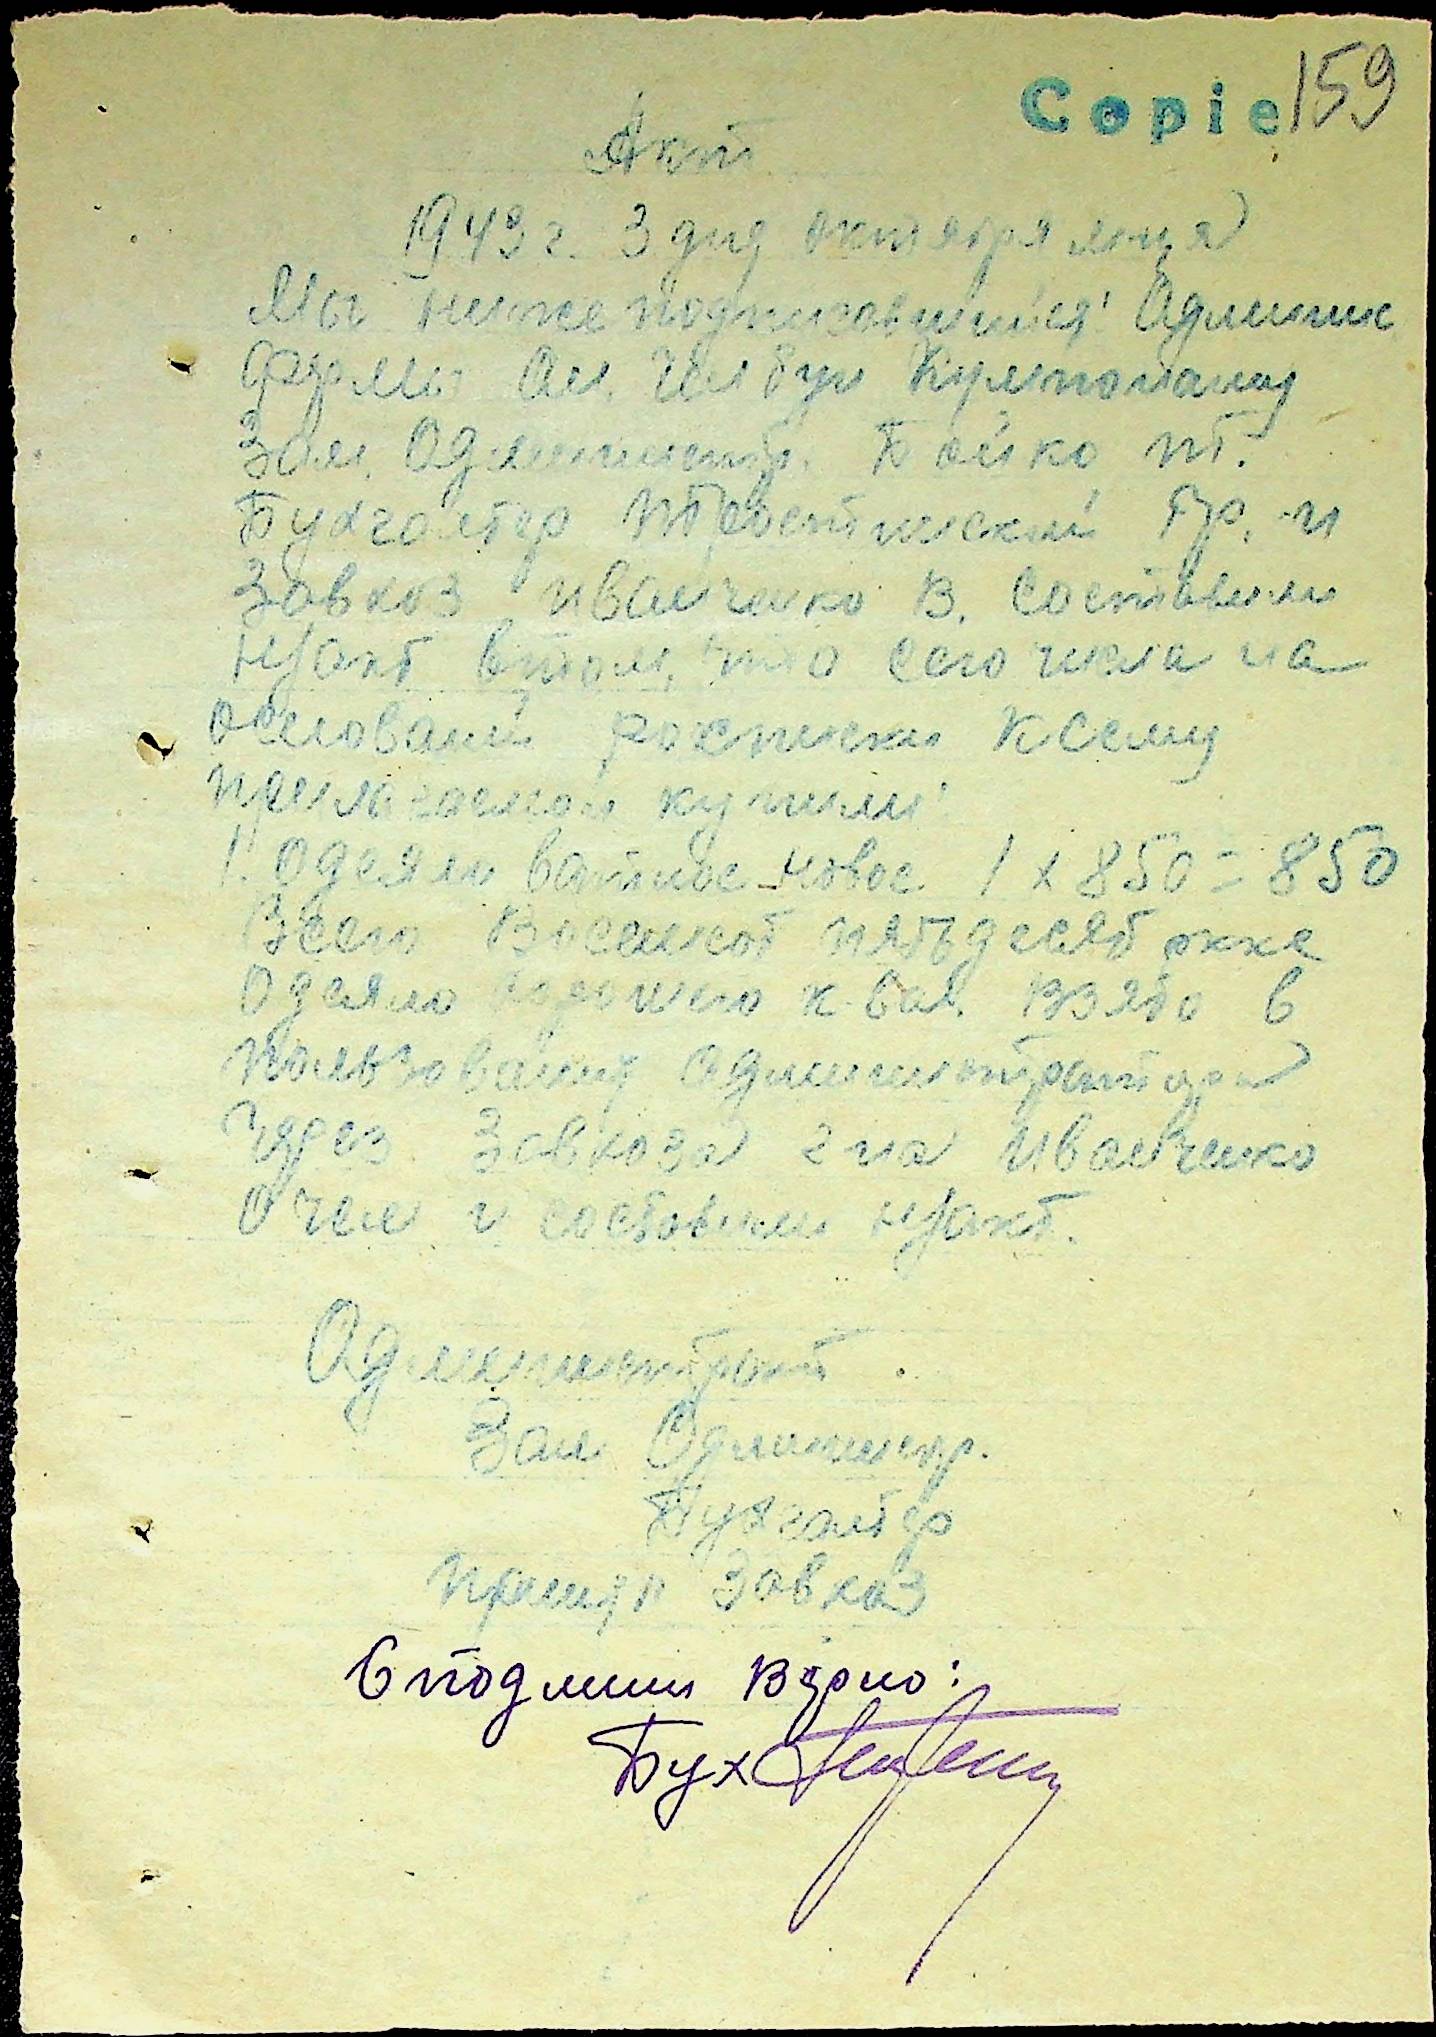 Copie 159
Акт
1943 г. 3 дня октября м-ця
Мы ниже подписавшийся Админис.
фермы Ан.
Зам. Администр. Бойко т.
Бухгалтер Гр. и
Завхоз Иванченко В. составили
н/акт в том, что сего числа на
основаней росписки к сему
прилагаемой купили:
1. Одеяло ватное новое 1 х 850 = 850
Всего Восемсот пятьдесят
Одеяло взято в
пользование администратором
через Завхоза г-на Иванченко
о чем и составили н/акт.
Администрат
Зам Администр.
Бухгалтер
Принял Завхоз
С подлини вэрно:
Бух